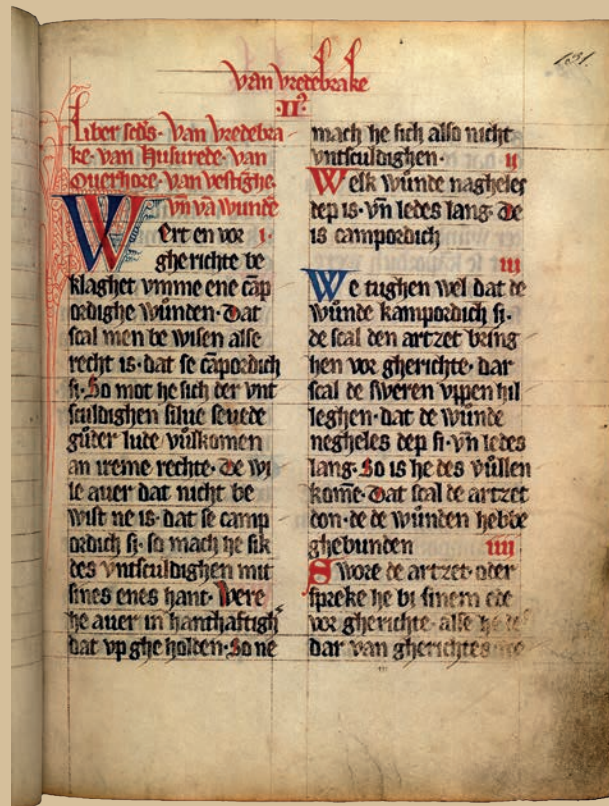 van vredebrake
·II·
131.
Liber scds· van vredebra
ke· van husurede· van
ouerhore· van vestighe·
vn̄ vā wunde
Wert en vor I·
gherichte be
klaghet vmme ene cāp
ordighe wůnden· Dat
scal men be wisen alse
recht is· dat se cāpordich
si· So mot he sich der vnt
sculdighen silue seuede
gůder lude vůlkomen
an ireme rechte· De wi
le auer dat nicht be
wist ne is· dat se camp
ordich si· so mach he sik
des vntsculdighen mit
sines enes hant· Were
he auer in hanthaftigh
dat vp ghe holden· So ne
mach he sich also nicht
vntsculdighen· II
Welk wůnde nagheles
dep is· vn̄ ledes lang· De
is campordich
III
We tughen wel dat de
wůnde kampordich si·
de scal den artzet bring
hen vor gherichte· dar
scal de sweren vppen hil
leghen· dat de wůnde
negheles dep si· vn̄ ledes
lang· So is he des vůllen
komē· Dat scal de artzet
don· de de wůnden hebbe
ghebunden IIII
Swore de artzet· oder
spreke he bi sinem ede
vor gherichte· alse he
dar van gherichtes